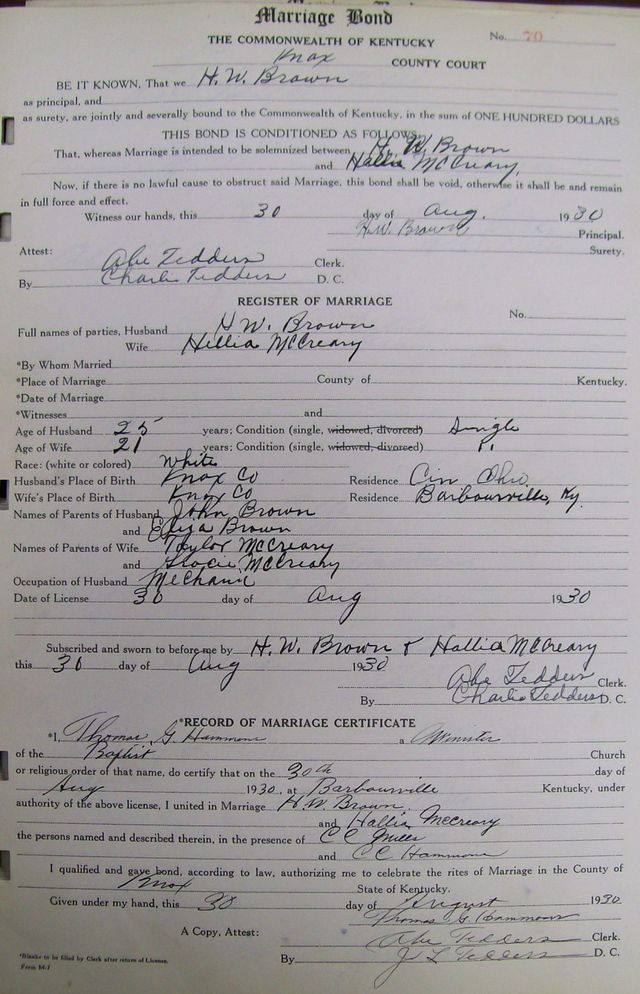 Marriage Bond
No. 70
THE COMMONWEALTH OF KENTUCKY
Knox COUNTY COURT
BE IT KNOWN, That we H. W. Brown
as principal, and
as surety, are jointly and severally bound to the Commonwealth of Kentucky, in the sum of ONE HUNDRED DOLLARS
THIS BOND IS CONDITIONED AS FOLLOWS:
That, whereas Marriage is intended to be solemnized between H. W. Brown
and Hallia McCreary,
Now, if there is no lawful cause to obstruct said Marriage, this bond shall be void, otherwise it shall be and remain
in full force and effect.
Witness our hands, this 30 day of Aug. 1930
H. W. Brown Principal.
Surety.
Attest: Abe Tedders Clerk.
By Charlie Tedders D. C.
REGISTER OF MARRIAGE
No.
Full names of parties, Husband H W. Brown
Wife Hillia McCreary
*By Whom Married
*Place of Marriage County of Kentucky.
*Date of Marriage
*Witnesses and
Age of Husband 25 years; Condition (single, widowed, divorced) Single
Age of Wife 21 years; Condition (single, widowed, divorced) "
Race: (white or colored) White
Husband's Place of Birth Knox Co Residence Cin Ohio
Wife's Place of Birth Knox Co Residence Barbourville, Ky.
Names of Parents of Husband John Brown
and Eliza Brown
Names of Parents of Wife Taylor McCreary
and McCreary
Occupation of Husband Mechanic
Date of License 30 day of Aug 1930
Subscribed and sworn to before me by H. W. Brown & Hallia McCreary
this 30 day of Aug 1930
Abe Tedders Clerk.
By Charlie Tedders D. C.
*RECORD OF MARRIAGE CERTIFICATE
*I, Thomas G. Hammons a Minister
of the Baptist Church
or religious order of that name, do certify that on the 30th day of
Aug 1930, at Barbourville Kentucky, under
authority of the above license, I united in Marriage H. W. Brown.
and Hallia McCreary
the persons named and described therein, in the presence of C C Mills
and C C Hammons
I qualified and gave bond, according to law, authorizing me to celebrate the rites of Marriage in the County of
Knox State of Kentucky.
Given under my hand, this 30 day of August 1930
Thomas G. Hammons
A Copy, Attest: Abe Tedders Clerk.
By J L Tedders D. C.
*Blanks to be filled by Clerk after return of License.
Form M-7